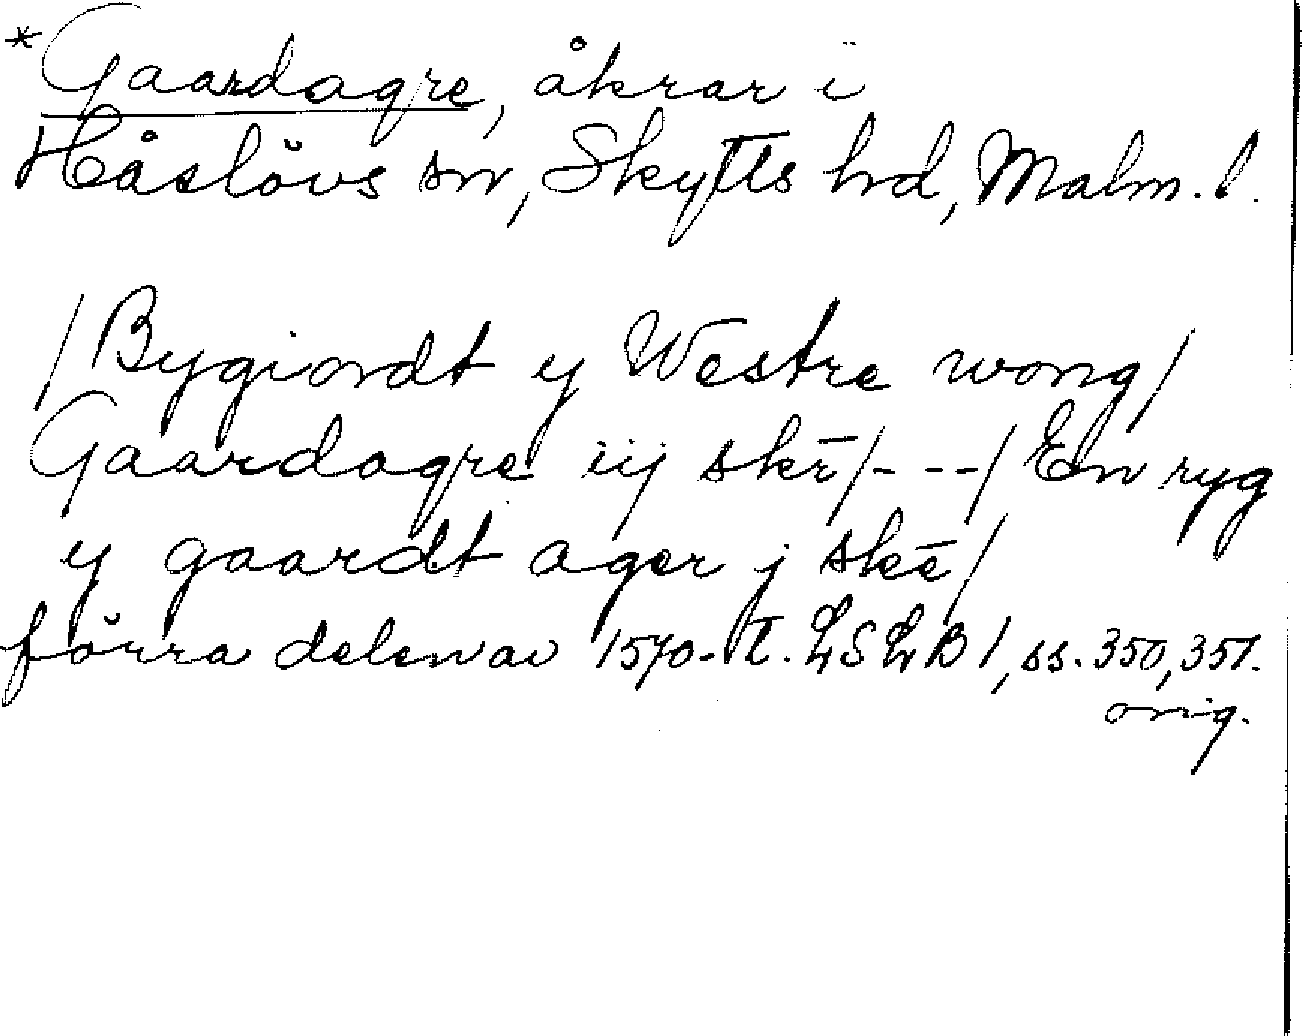 *Gaardagre, åkrar i
Håslövs sn, Skytts hrd, Malm. l.
/Bygiordt y Westre wong/
Gaardagre iij skē/---/En ryg
y gaardt ager j skē/
förra delen av 1570-t. LSLB 1, ss. 350, 351.
orig.